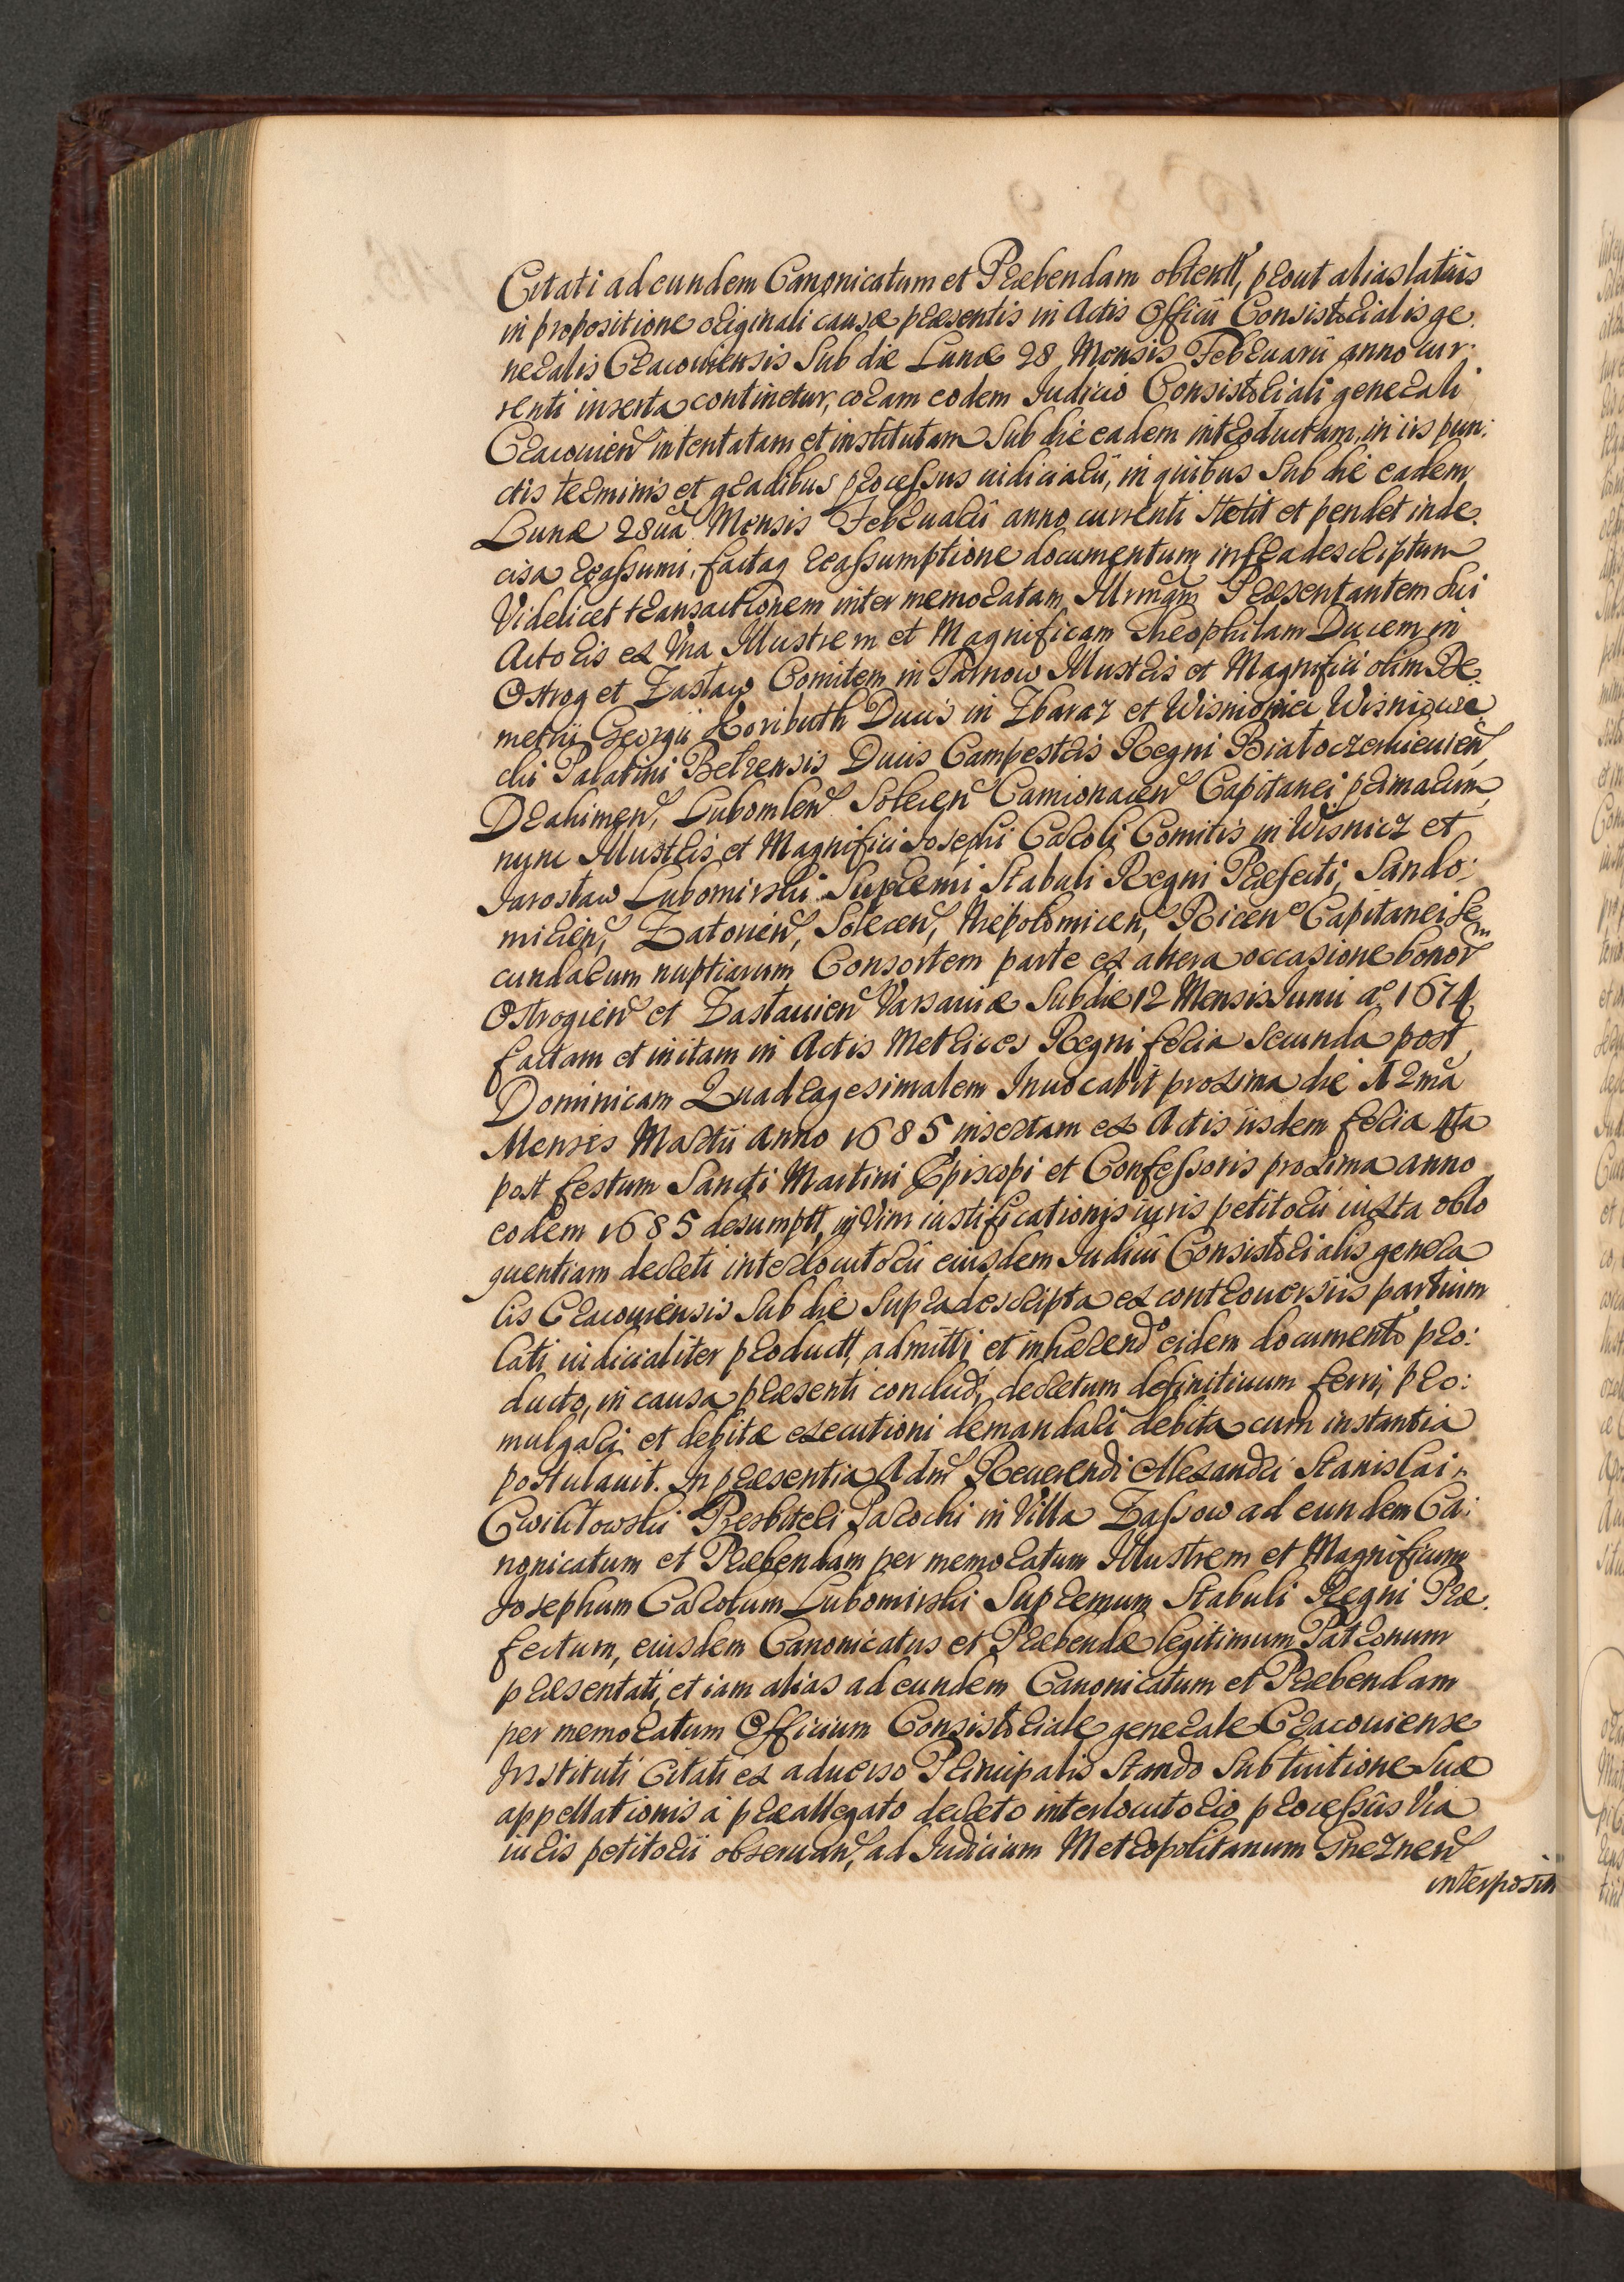 Citati ad eundem Canonicatum et Præbendam obtentt, prout alias latius
in propositione originali causæ præsentis in Actis Officii Consistorialis ge
neralis Cracouiensis Sub die Lunæ 28 Mensis Februarii anno cur:
renti inserta continetur, coram eodem Iudicio Consistoriali generali
Cracouien intentatam et institutam Sub die eadem introductam, in iis pun:
ctis terminis et gradibus processus iudiciarii, in quibus Sub die eadem
Lunæ 28ua Mensis Februarii anno currenti stetit et pendet inde
cisa reassumi, factaq reassumptione documentum infradescriptum
Videlicet transactionem inter memoratam Illrmam Præsentantem sui
Actoris ex Vna Illustrem et Magnificam Theophilam Ducem in
Ostrog et Zaslaw Comitem in Tarnow Illustris et Magnifici olim De
metrii Georgii Koributh Ducis in Zbaraz et Wisniowiec Wisniowie
cki Palatini Belzensis Ducis Campestris Regni Białoczerkieuien,
Drahimen, Lubomlen Solecen Camionacen Capitanei primarum,
nunc Illustris et Magnifici Josephi Caroli Comitis in Wisnicz et
Jaroslaw Lubomirski Supremi Stabuli Regni Præfecti, Sando:
mirien, Zatorien, Solecen, Niepolomicen, Ricen Capitanei se
cundarum nuptiarum Consortem parte ex altera occasione bonorm
Ostrogien et Zaslauien Varsauiæ Sub die 12 Mensis Iunii ao 1674
factam et initam in Actis Metrices Regni feria secunda post
Dominicam Quadragesimalem Inuocabit proxima die 12ma
Mensis Martii Anno 1685 insertam ex Actis iisdem feria 4ta
post festum Sancti Martini Episcopi et Confessoris proxima anno
eodem 1685 desumptt, in Vim iustificationis iuris petitorii iuxta oblo
quentiam decreti interlocutorii eiusdem Iudicii Consistorialis genera
lis Cracouiensis Sub die Supradescripta ex controuersiis partium
lati iudicialiter productt, admitti et inhærendo eidem documento pro:
ducto, in causa præsenti concludi, decretum definitiuum ferri, pro:
mulgari et debitæ executioni demandari debita cum instantia
postulauit. In præsentia Adm Reuerendi Alexandri Stanislai
Cwiktowski Presbiteri Parochi in Villa Zassow ad eundem Ca:
nonicatum et Præbendam per memoratum Illustrem et Magnificum
Josephum Carolum Lubomirski Supremum Stabuli Regni Præ
fectum, eiusdem Canonicatus et Præbendæ legitimum Patronum
præsentati, et iam alias ad eundem Canonicatum et Præbendam
per memoratum Officium Consistoriale generale Cracouiense
Instituti Citati ex aduerso Principalis Stando Sub tuitione Suæ
appellationis á præallegato decreto interlocutorio processus Via
iuris petitorii obseruan, ad Iudicium Metropolitanum Gneznen
interposit